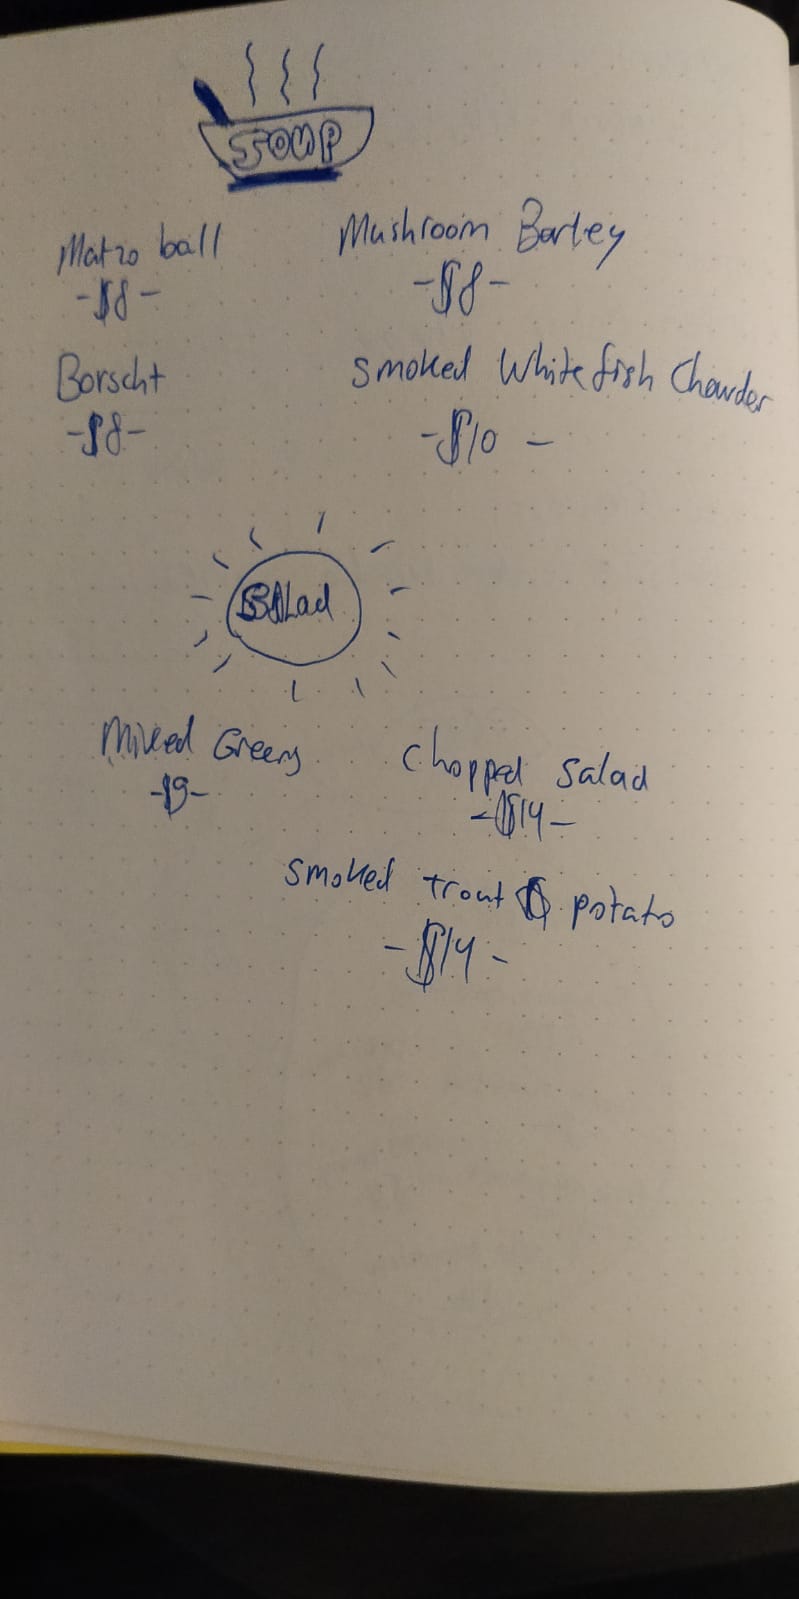 SOUP
Matzo ball
-$8-
Mushroom Barley
-$8-
Borscht
-$8-
Smoked Whitefish Chowder
-$10-
SALad
Mixed Greens
-$9-
Chopped Salad
-$14-
Smoked trout & potato
-$14-